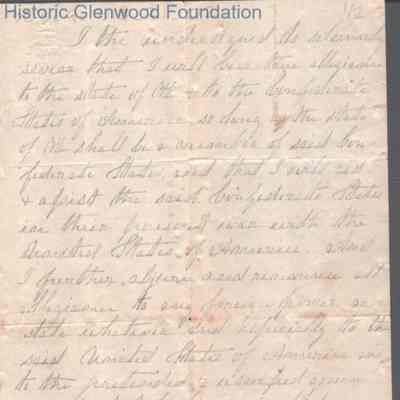 Historic Glenwood Foundation
1/2
I the undersigned do solemnly
swear that I will bear true allegiance
to the State of & to the Confederate
States of America so long as the State
of shall be a member of said Con
federate States and that I will aid
& assist the said Confederate States
in their present war with the
United States of America. And
I further abjure and renounce all
Allegiance to any foreign power or
state whatever and especially to the
said United States of America and
to the pretended & usurped govern